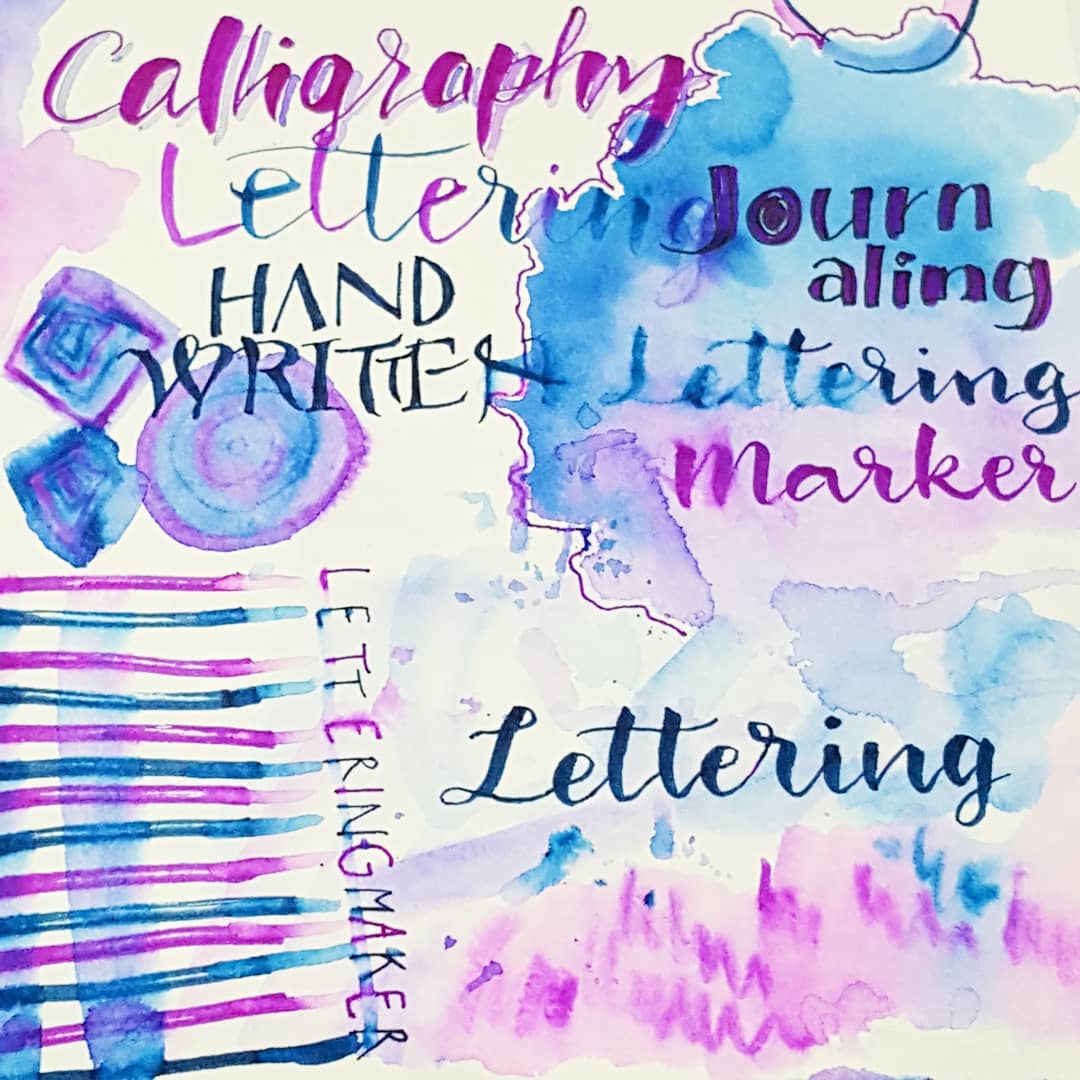 Calligraphy
Lettering
HAND
WRITTEN
Journ
aling
Lettering
Marker
LETTERINGMAKER
Lettering